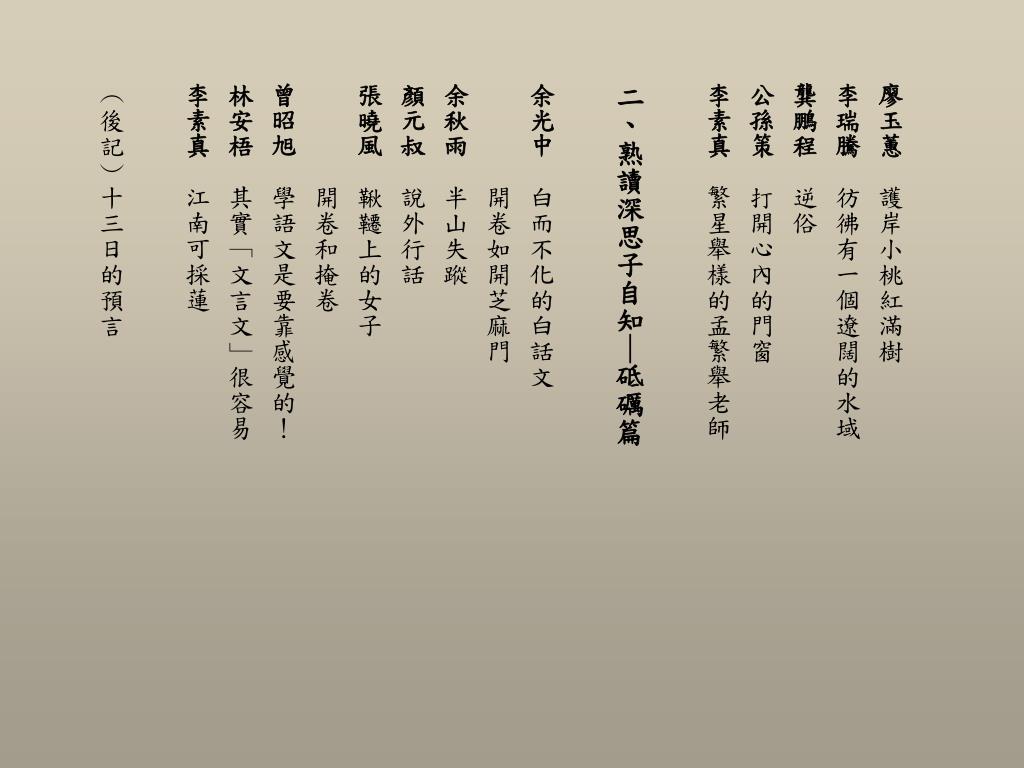 廖玉蕙　護岸小桃紅滿樹
李瑞騰　彷彿有一個遼闊的水域
龔鵬程　逆俗
公孫策　打開心內的門窗
李素真　繁星舉樣的孟繁舉老師
二、熟讀深思子自知—砥礪篇
余光中　白而不化的白話文
開卷如開芝麻門
余秋雨　半山失蹤
顏元叔　說外行話
張曉風　鞦韆上的女子
開卷和掩卷
曾昭旭　學語文是要靠感覺的！
林安梧　其實「文言文」很容易
李素真　江南可採蓮
（後記）十三日的預言